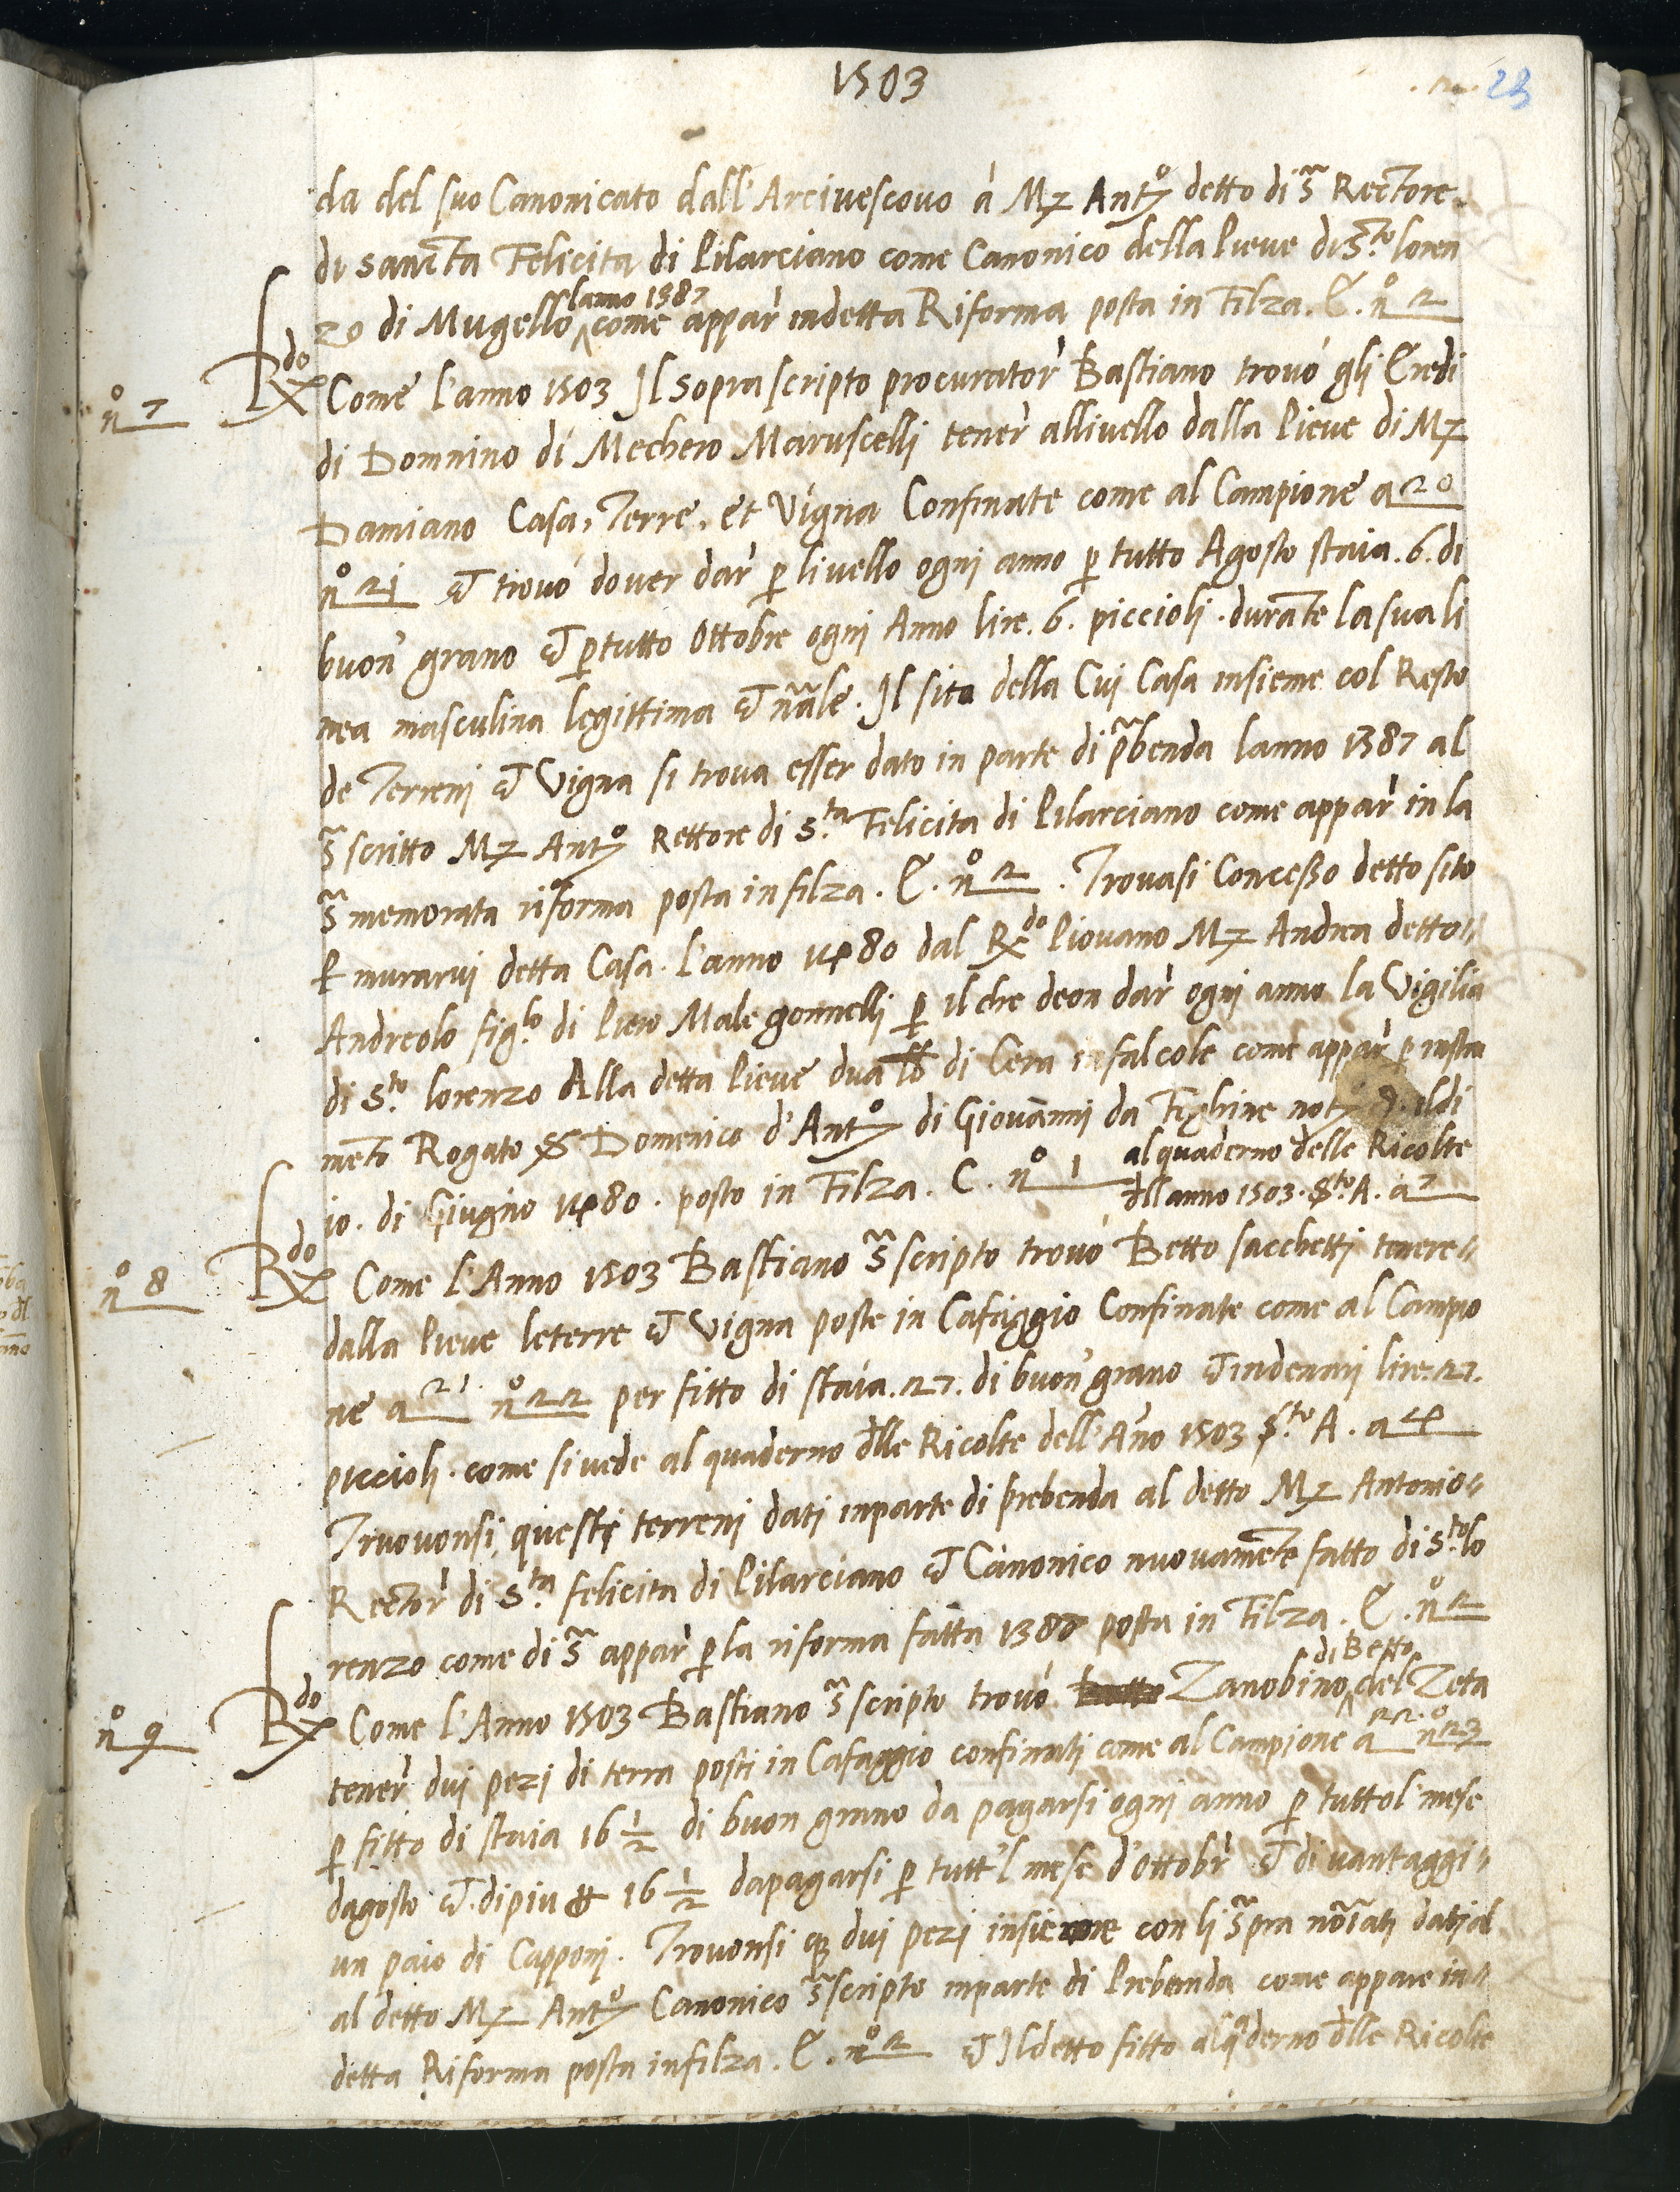 1503
23
da del suo Canonicato dall'Arcivescovo à Mz Antº detto di s̃ Rectore
di sancta Felicita di Pilarciano come Canonico della Pieve di Sto loren
lanno 1387
zo di Mugello ^ come appar' indetta Riforma posta in Filza. E. nº 2
nº 7
Rdo Come l'anno 1503 Il soprascripto procurator' Bastiano trovó gli Eredi
di Domnino di Mechero Maruscelli tener' allivello dalla Pieve di Mz
Damiano Casa, Terre, et Vigna Confinate come al Campione a 20
nº 21 et trovó dover dar' p livello ogni anno p tutto Agosto staia .6. di
buon' grano et p tutto Ottobre ogni Anno lire .6. piccioli . durãte la sua li
nea masculina legittima et nãle. Il sito della Cui Casa insieme col Resto
de Terreni et Vigna si trova esser dato in parte di p̃benda lanno 1387 al
s̃scritto Mz Antº Rettore di S.ta Felicita di Pilarciano come appar' in la
s̃memorata riforma posta in filza. E. nº 2 . Trovasi Concesso detto sito
P murarvi detta Casa. L'anno 1480 dal Rdo Piovano Mz Andrea detto
Andreolo figlo di Piero Malegonnelli p il che deon dar' ogni anno la Vigilia
di Sto lorenzo Alla detta Pieve dua lb di Cera in falcole come appar' p instru
mẽto Rogato S Domenico d'Antº di Giovãnni da Fighine notº il di
10. di Giugno 1480. posto in Filza. C. nº 1 al quaderno delle Ricolte
dell anno 1503. Sto A. a 7
nº 8
Rdo Come l'Anno 1503 Bastiano s̃scripto trovó Betto sacchetti tenere
dalla Pieve le terre et Vigna poste in Cafaggio Confinate come al Campio
ne a 21. nº 22 per fitto di staia .27. di buon' grano et in denari lire .27.
piccioli . come si vede al quaderno dlle Ricolte dell'Año 1503 Sto A. a 4
Truovonsi questi terreni dati inparte di prebenda al detto Mz Antonio
Rector' di S.ta felicita di Pilarciano et Canonico nuovamẽte fatto di S.to lo
renzo come di s̃ appar' p la riforma fatta 1387 posta in Filza. E. nº 2
nº 9
di Betto
Rdo Come l'Anno 1503 Bastiano s̃scripto trovó Zanobino ^ del Zeta
tener' dui pezi di terra posti in Cafaggio confinati come al Campione a 22. nº 23
p fitto di staia 16 1/2 di buon grano da pagarsi ogni anno p tutto l' mese
dagosto et di piu lb 16 1/2 dapagarsi p tutt'l mese d'ottobr' et di vantaggi
un paio di Capponi. Trovonsi q dui pezi insieme con li s̃pra nõiati dati al
al detto Mz Antº Canonico s̃scripto inparte di Prebenda come appare in
detta Riforma posta infilza. E. nº 2 et Il detto fitto al qderno dlle Ricolte